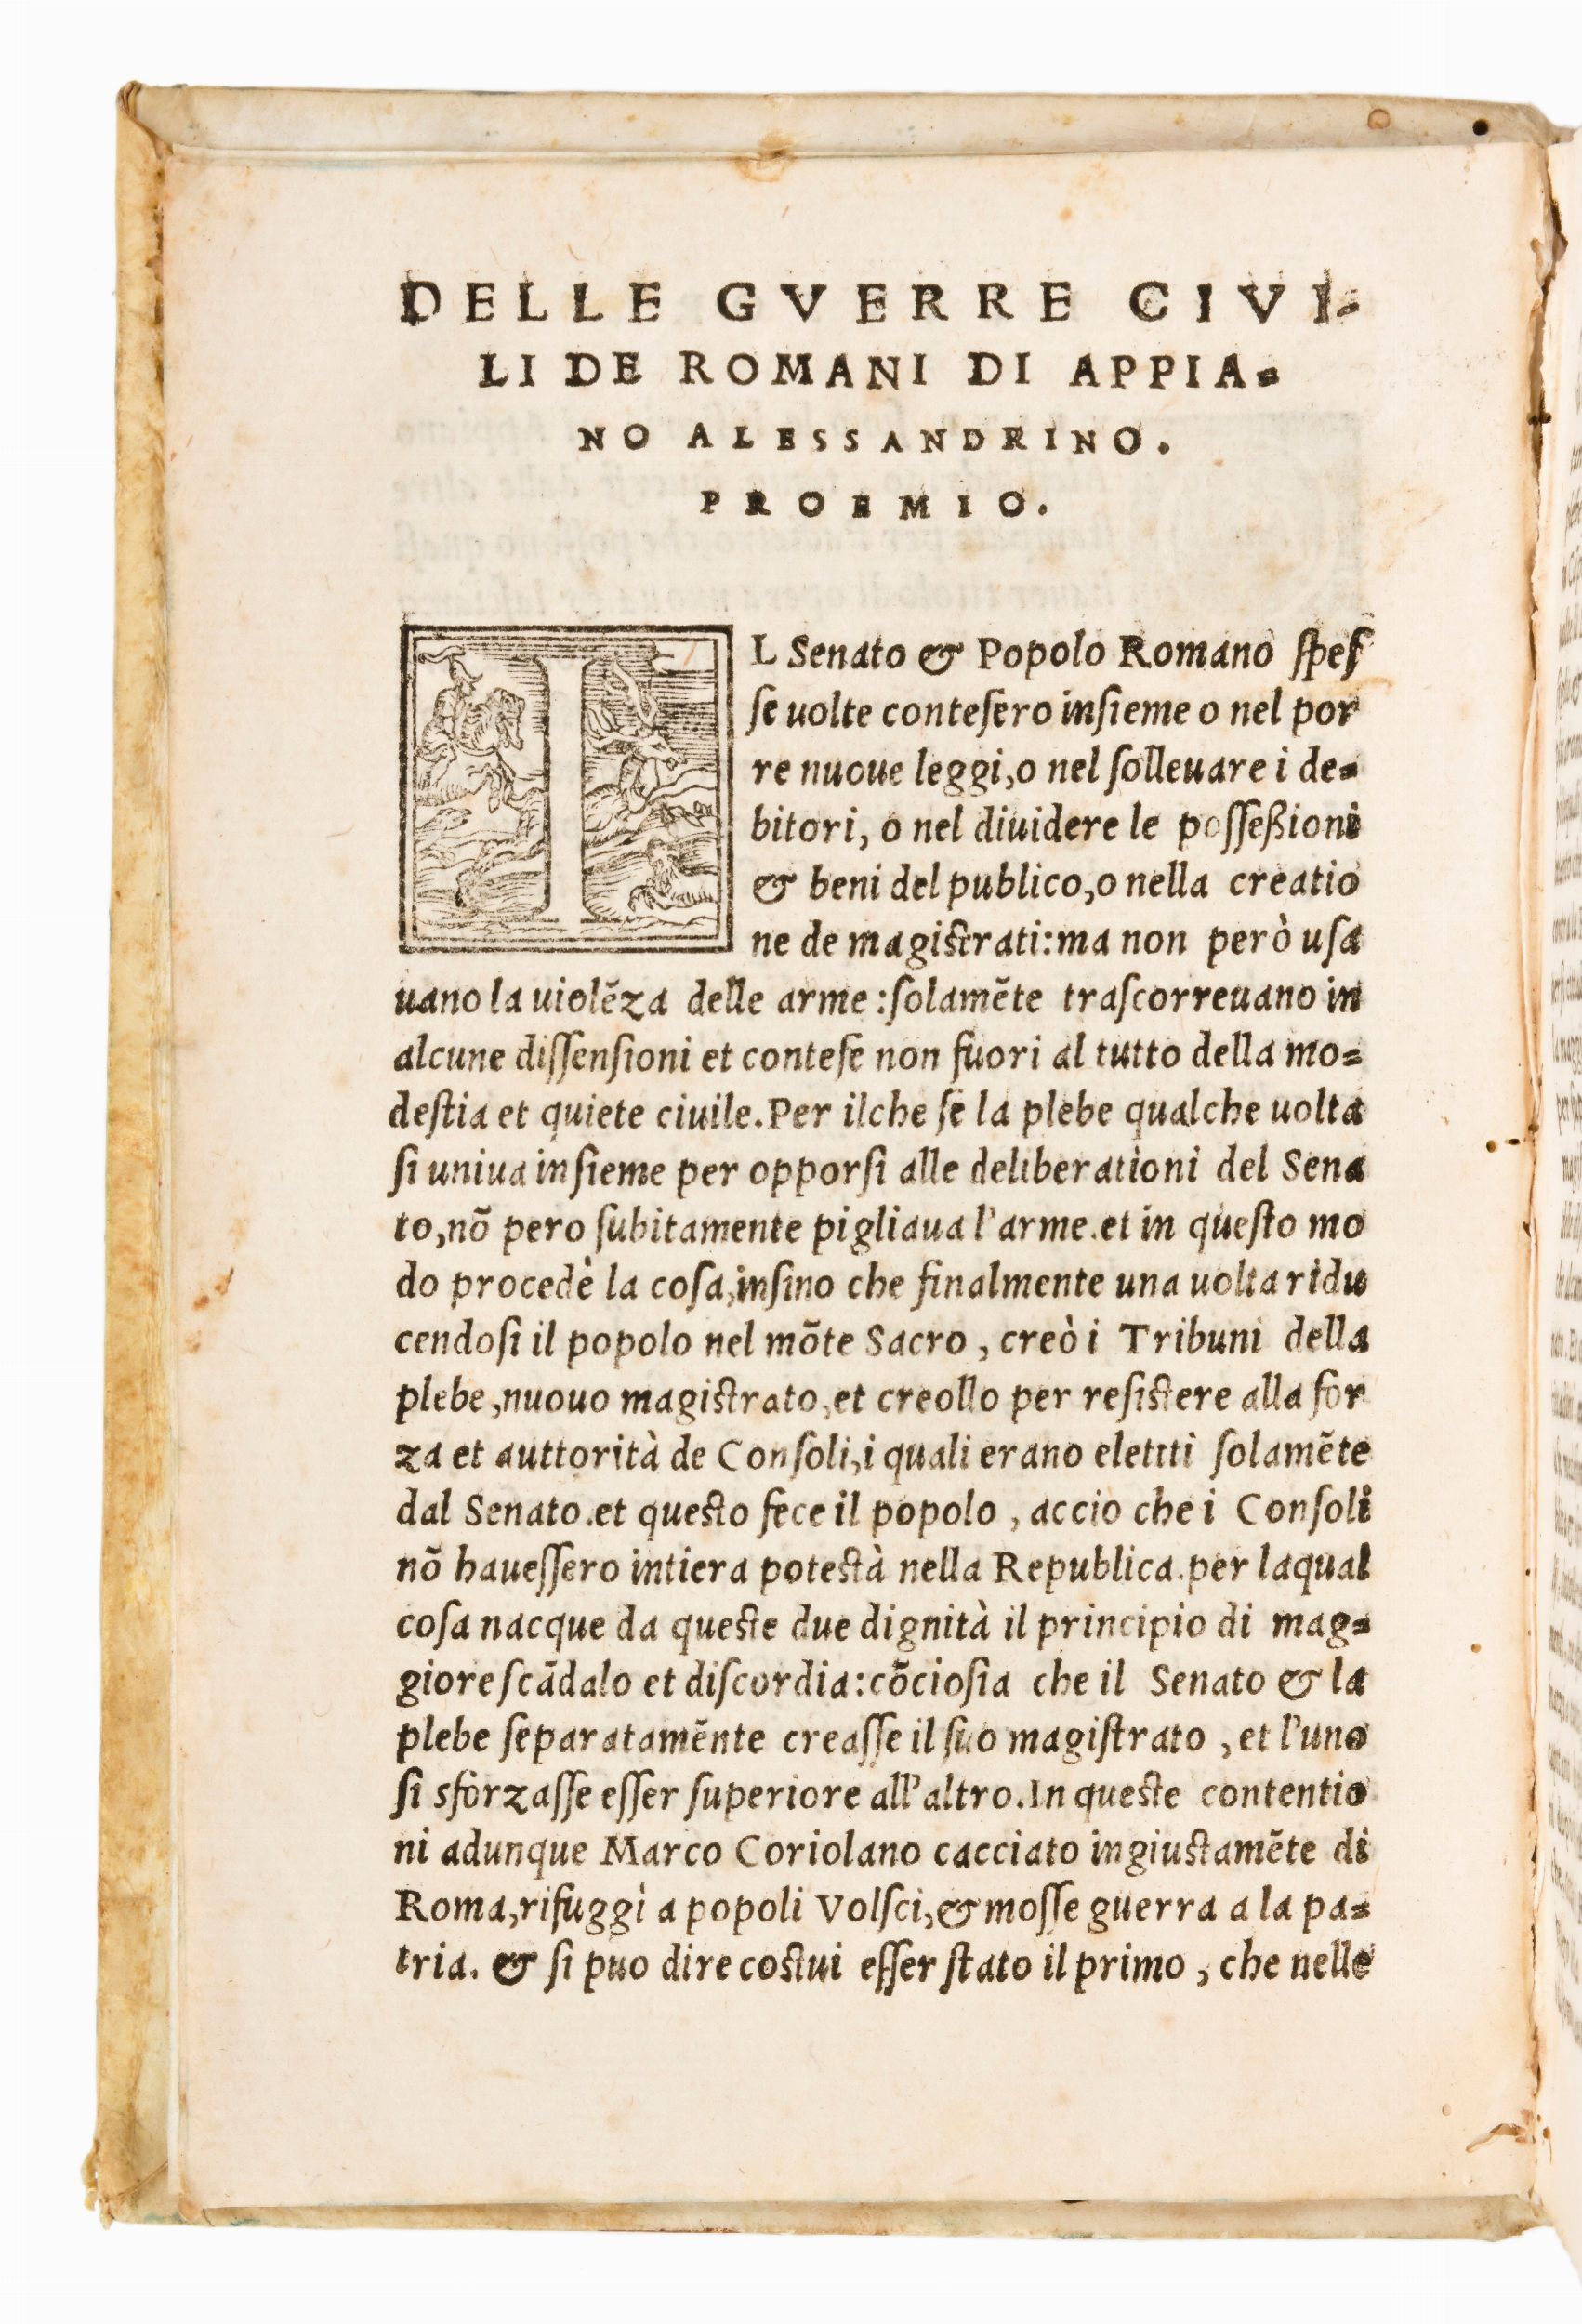 DELLE GVERRE CIVI-
LI DE ROMANI DI APPIA-
NO ALESSANDRINO.
PROEMIO.
IL Senato & Popolo Romano ſpeſ
ſe uolte conteſero inſieme o nel por
re nuoue leggi,o nel ſolleuare i de-
bitori, o nel diuidere le poſſeßioni
& beni del publico,o nella creatio
ne de magiſtrati:ma non però uſa
uano la uiolẽza delle arme :ſolamẽte traſcorreuano in
alcune diſſenſioni et conteſe non fuori al tutto della mo=
deſtia et quiete ciuile.Per ilche ſe la plebe qualche uolta
ſi uniua inſieme per opporſi alle deliberationi del Sena
to,nõ pero ſubitamente pigliaua l'arme.et in queſto mo
do procedè la coſa,inſino che finalmente una uolta ridu
cendoſi il popolo nel mõte Sacro , creò i Tribuni della
plebe,nuouo magiſtrato,et creollo per reſiſtere alla for
za et auttorità de Conſoli,i quali erano elettti ſolamẽte
dal Senato.et queſto fece il popolo , accio che i Conſoli
nõ haueſſero intiera poteſtà nella Republica.per laqual
coſa nacque da queſte due dignità il principio di mag=
giore ſcãdalo et diſcordia:cõcioſia che il Senato & la
plebe ſeparatamẽnte creaſſe il ſuo magiſtrato , et l'uno
ſi sforzaſſe eſſer ſuperiore all'altro.In queſte contentio
ni adunque Marco Coriolano cacciato ingiuſtamẽte di
Roma,rifuggì a popoli Volſci,& moſſe guerra a la pa=
tria. & ſi puo dire coſtui eſſer ſtato il primo , che nelle